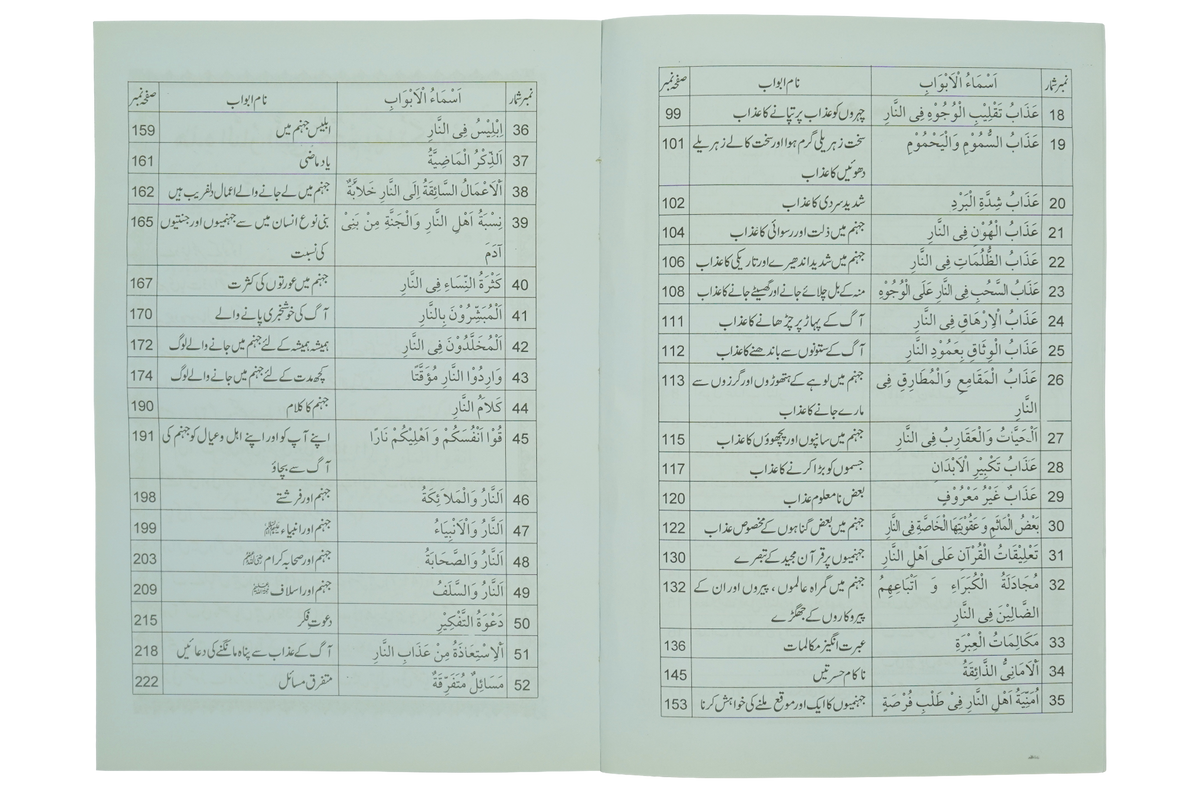 نمبر شمار اَسْمَاءُ الْاَبْوَابِ نام ابواب صفحہ نمبر
18 عَذَابُ تَقْلِيْبِ الْوُجُوْهِ فِى النَّارِ چہروں کو عذاب پر تپانے کا عذاب 99
19 عَذَابُ السُّمُوْمِ وَالْيَحْمُوْمِ سخت زہریلی گرم ہوا اور سخت کالے زہریلے 101
دھوئیں کا عذاب
20 عَذَابُ شِدَّةِ الْبَرْدِ شدید سردی کا عذاب 102
21 عَذَابُ الْهُوْنِ فِى النَّارِ جہنم میں ذلت اور رسوائی کا عذاب 104
22 عَذَابُ الظُّلُمَاتِ فِى النَّارِ جہنم میں شدید اندھیرے اور تاریکی کا عذاب 106
23 عَذَابُ السَّحْبِ فِى النَّارِ عَلَى الْوُجُوْهِ منہ کے بل چلائے جانے اور گھسیٹے جانے کا عذاب 108
24 عَذَابُ الْاِرْهَاقِ فِى النَّارِ آگ کے پہاڑ پر چڑھانے کا عذاب 111
25 عَذَابُ الْوِثَاقِ بِعَمُوْدِ النَّارِ آگ کے ستونوں سے باندھنے کا عذاب 112
26 عَذَابُ الْمَقَامِعِ وَالْمَطَارِقِ فِى جہنم میں لوہے کے ہتھوڑوں اور گرزوں سے 113
النَّارِ مارے جانے کا عذاب
27 اَلْحَيَّاتُ وَالْعَقَارِبُ فِى النَّارِ جہنم میں سانپوں اور بچھوؤں کا عذاب 115
28 عَذَابُ تَكْبِيْرِ الْاَبْدَانِ جسموں کو بڑا کرنے کا عذاب 117
29 عَذَابٌ غَيْرُ مَعْرُوْفٍ بعض نا معلوم عذاب 120
30 بَعْضُ الْمَاٰثِمِ وَ عَقُوْبَتِهَا الْخَاصَّةِ فِى النَّارِ جہنم میں بعض گناہوں کے مخصوص عذاب 122
31 تَعْلِيْقَاتُ الْقُرْآنِ عَلٰى اَهْلِ النَّارِ جہنمیوں پر قرآن مجید کے تبصرے 130
32 مُجَادَلَةُ الْكُبَرَاءِ وَ اَتْبَاعِهِمُ جہنم میں گمراہ عالموں ، پیروں اور ان کے 132
الضَّالِّيْنَ فِى النَّارِ پیروکاروں کے جھگڑے
33 مَكَالِمَاتُ الْعِبْرَةِ عبرت انگیز مکالمات 136
34 اَلْاَمَانِىُّ الذَّائِقَةُ ناکام حسرتیں 145
35 اُمْنِيَّةُ اَهْلِ النَّارِ فِىْ طَلْبِ فُرْصَةٍ جہنمیوں کا ایک اور موقع ملنے کی خواہش کرنا 153
نمبر شمار اَسْمَاءُ الْاَبْوَابِ نام ابواب صفحہ نمبر
36 اِبْلِيْسُ فِى النَّارِ ابلیس جہنم میں 159
37 اَلذِّكْرُ الْمَاضِيَّةُ یاد ماضی 161
38 اَلْاَعْمَالُ السَّائِقَةُ اِلَى النَّارِ خَلَابَّةٌ جہنم میں لے جانے والے اعمال دلفریب ہیں 162
39 نِسْبَةُ اَهْلِ النَّارِ وَالْجَنَّةِ مِنْ بَنِىْ بنی نوع انسان میں سے جہنمیوں اور جنتیوں 165
آدَمَ کی نسبت
40 كَثْرَةُ النِّسَاءِ فِى النَّارِ جہنم میں عورتوں کی کثرت 167
41 اَلْمُبَشِّرُوْنَ بِالنَّارِ آگ کی خوشخبری پانے والے 170
42 اَلْمُخَلَّدُوْنَ فِى النَّارِ ہمیشہ ہمیشہ کے لئے جہنم میں جانے والے لوگ 172
43 وَارِدُوْا النَّارِ مُؤَقَّتًا کچھ مدت کے لئے جہنم میں جانے والے لوگ 174
44 كَلَامُ النَّارِ جہنم کا کلام 190
45 قُوْا اَنْفُسَكُمْ وَ اَهْلِيْكُمْ نَارًا اپنے آپ کو اور اپنے اہل و عیال کو جہنم کی 191
آگ سے بچاؤ
46 اَلنَّارُ وَالْمَلَائِكَةُ جہنم اور فرشتے 198
47 اَلنَّارُ وَالْاَنْبِيَاءُ جہنم اور انبیاء 199
48 اَلنَّارُ وَالصَّحَابَةُ جہنم اور صحابہ کرام 203
49 اَلنَّارُ وَالسَّلَفُ جہنم اور اسلاف 209
50 دَعْوَةُ التَّفْكِيْرِ دعوتِ فکر 215
51 اَلْاِسْتِعَاذَةُ مِنْ عَذَابِ النَّارِ آگ کے عذاب سے پناہ مانگنے کی دعائیں 218
52 مَسَائِلُ مُتَفَرِّقَةٌ متفرق مسائل 222